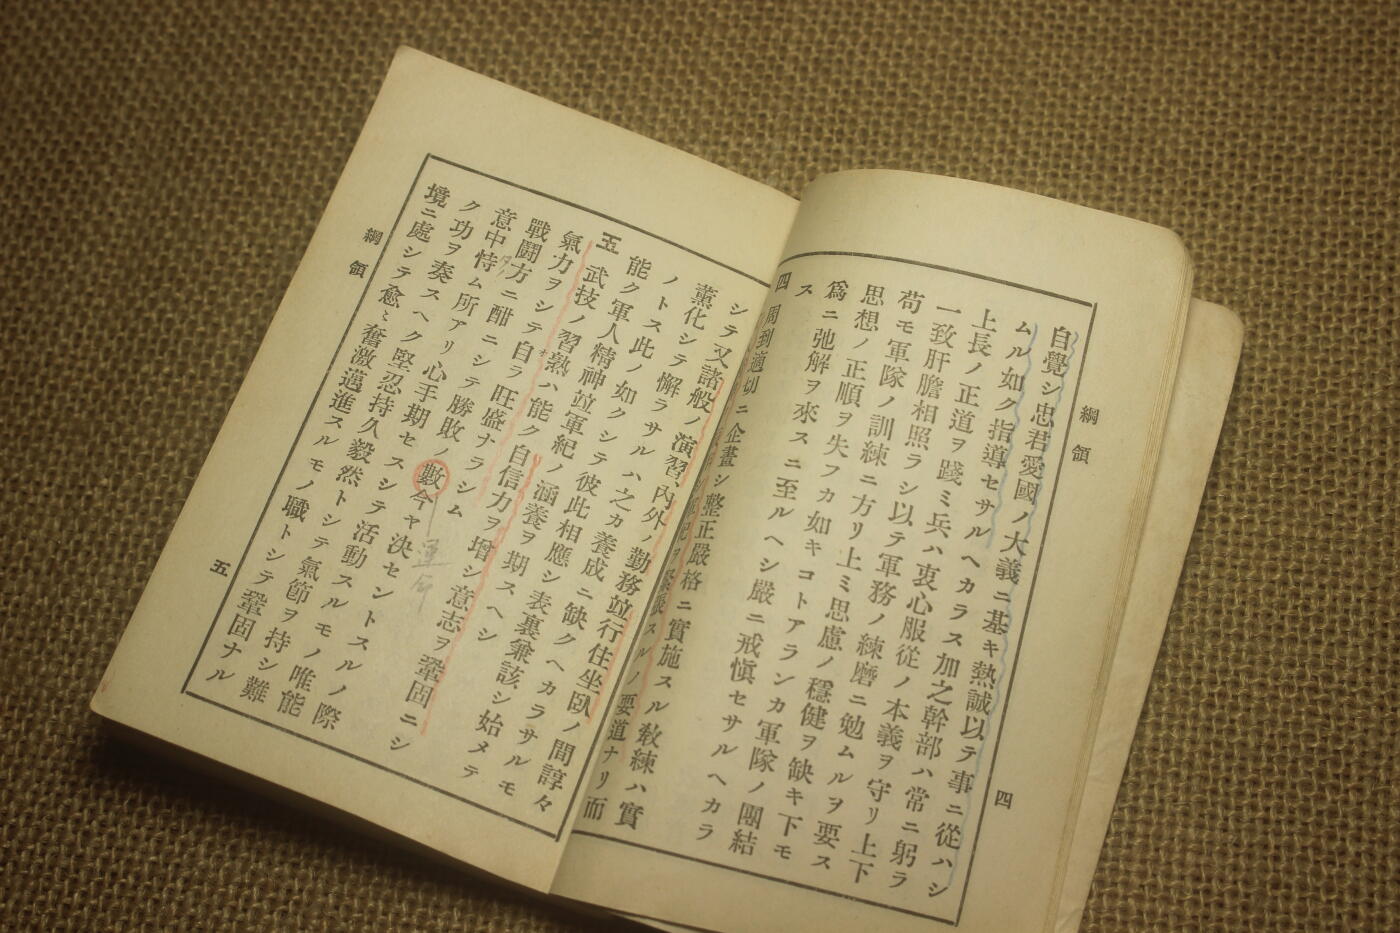 綱領
四
自覺シ忠君愛國ノ大義ニ基キ熱誠以テ事ニ從ハシ
ムル如ク指導セサルヘカラス加之幹部ハ常ニ躬ラ
上長ノ正道ヲ踐ミ兵ハ衷心服從ノ本義ヲ守リ上下
一致肝膽相照ラシ以テ軍務ノ練磨ニ勉ムルヲ要ス
苟モ軍隊ノ訓練ニ方リ上ミ思慮ノ穩健ヲ缺キ下モ
思想ノ正順ヲ失フカ如キコトアランカ軍隊ノ團結
爲ニ弛解ヲ來スニ至ルヘシ嚴ニ戒愼セサルヘカラ
ス
四 周到適切ニ企畫シ整正嚴格ニ實施スル敎練ハ實
軍紀ヲ緊張スルノ要道ナリ而
シテ又諸般ノ演習、內外ノ勤務竝行住坐臥ノ間諄々
薰化シテ懈ラサルハ之カ養成ニ缺クヘカラサルモ
ノトス此ノ如クシテ彼此相應シ表裏兼該シ始メテ
能ク軍人精神竝軍紀ノ涵養ヲ期スヘシ
五 武技ノ習熟ハ能ク自信力ヲ增シ意志ヲ鞏固ニシ
氣力ヲシテ自ラ旺盛ナラシム
戰闘方ニ酣ニシテ勝敗ノ數今ヤ決セントスルノ際
運命
意中恃ム所アリ心手期セスシテ活動スルモノ唯能
ク功ヲ奏スヘク堅忍持久毅然トシテ氣節ヲ持シ難
境ニ處シテ愈〻奮激邁進スルモノ職トシテ鞏固ナル
綱領
五